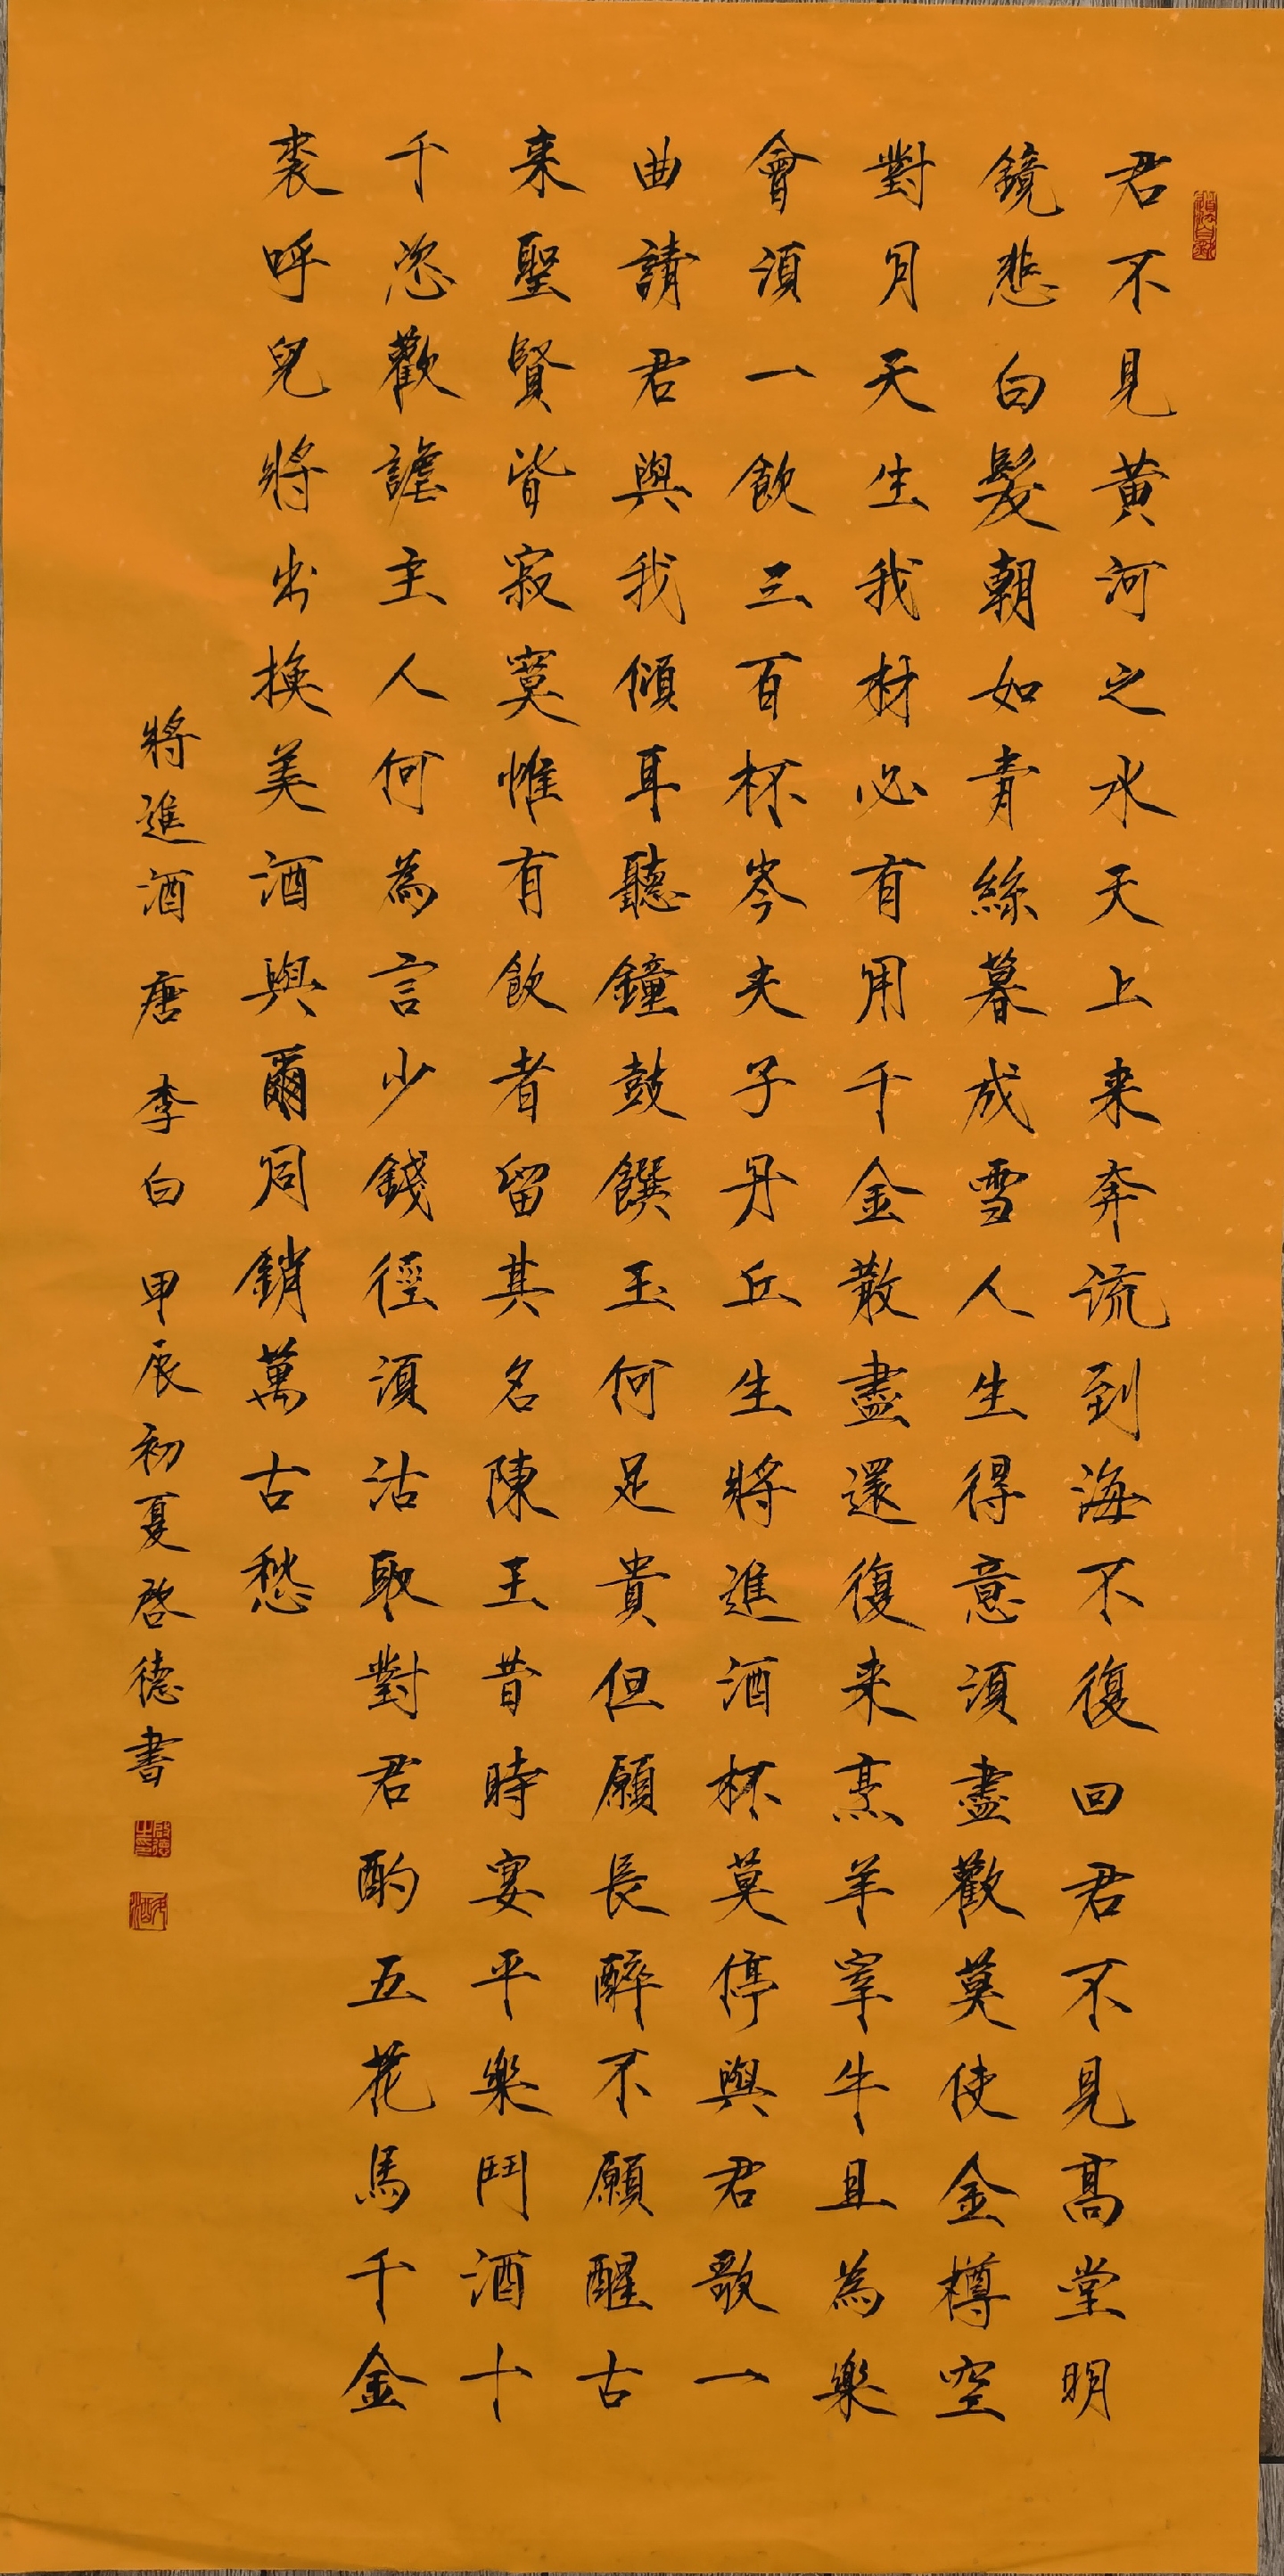 道法自然
君不見黄河之水天上来奔流到海不復回君不見高堂明
鏡悲白髮朝如青絲暮成雪人生得意須盡歡莫使金樽空
對月天生我材必有用千金散盡還復来烹羊宰牛且為樂
會須一飲三百杯岑夫子丹丘生將進酒杯莫停與君歌一
曲請君與我傾耳聽鐘鼓饌玉何足貴但願長醉不願醒古
来聖賢皆寂寞惟有飲者留其名陳王昔時宴平樂鬥酒十
千恣歡謔主人何為言少錢徑須沽取對君酌五花馬千金
裘呼兒將出換美酒與爾同銷萬古愁
將進酒 唐 李白 甲辰初夏啓德書
啓德之印